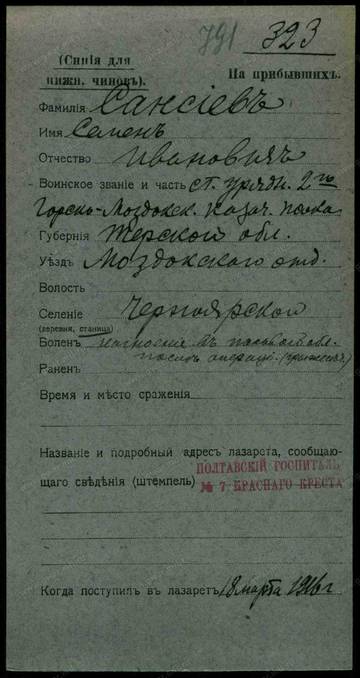 791 323
(Синія для
нижн. чиновъ).
На прибывшихъ.
Фамилія Сансіевъ
Имя Семенъ
Отчество Ивановичъ
Воинское званіе и часть ст. урядн. 2го
Горско-Моздокск. казач. полка
Губернія Терской обл.
Уѣздъ Моздокскаго отд.
Волость
Селеніе Черноярской
(деревня, станица)
Боленъ въ обл.
Раненъ послѣ операціи
Время и мѣсто сраженія
Названіе и подробный адресъ лазарета, сообщаю-
щаго свѣдѣнія (штемпель)
ПОЛТАВСКІЙ ГОСПИТАЛЬ
№ 7 КРАСНАГО КРЕСТА
Когда поступилъ въ лазаретъ 18 марта 1916 г